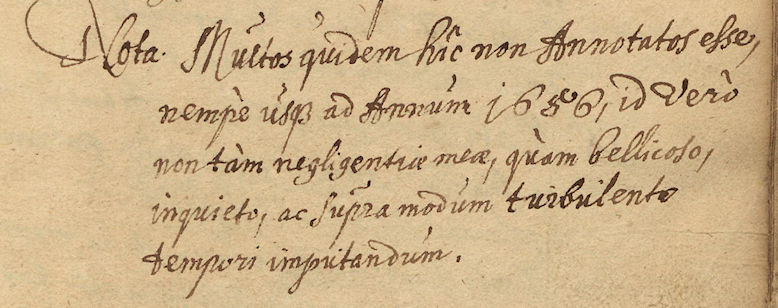 Nota. Multos quidem hîc non Annotatos esse,
nempè usq ad Annum 1656, id Verò
non tàm negligentiæ meæ, quàm bellicoso,
inquieto, ac supra modum turbulento
tempori imputandum.